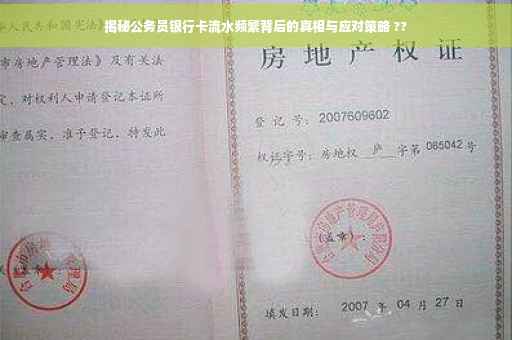 揭秘公务员银行卡流水频繁背后的真相与应对策略 ??
人民共和国宪法》
市房地产管理法》及有关法
定，对权利人申请登记本证所
审查属实，准予登记，特发此
房地产权证
登 记 号： 2007609602
权证字号：房地权 庐 字第 065042 号
(盖章)：
填发日期： 2007 年 04 月 27 日